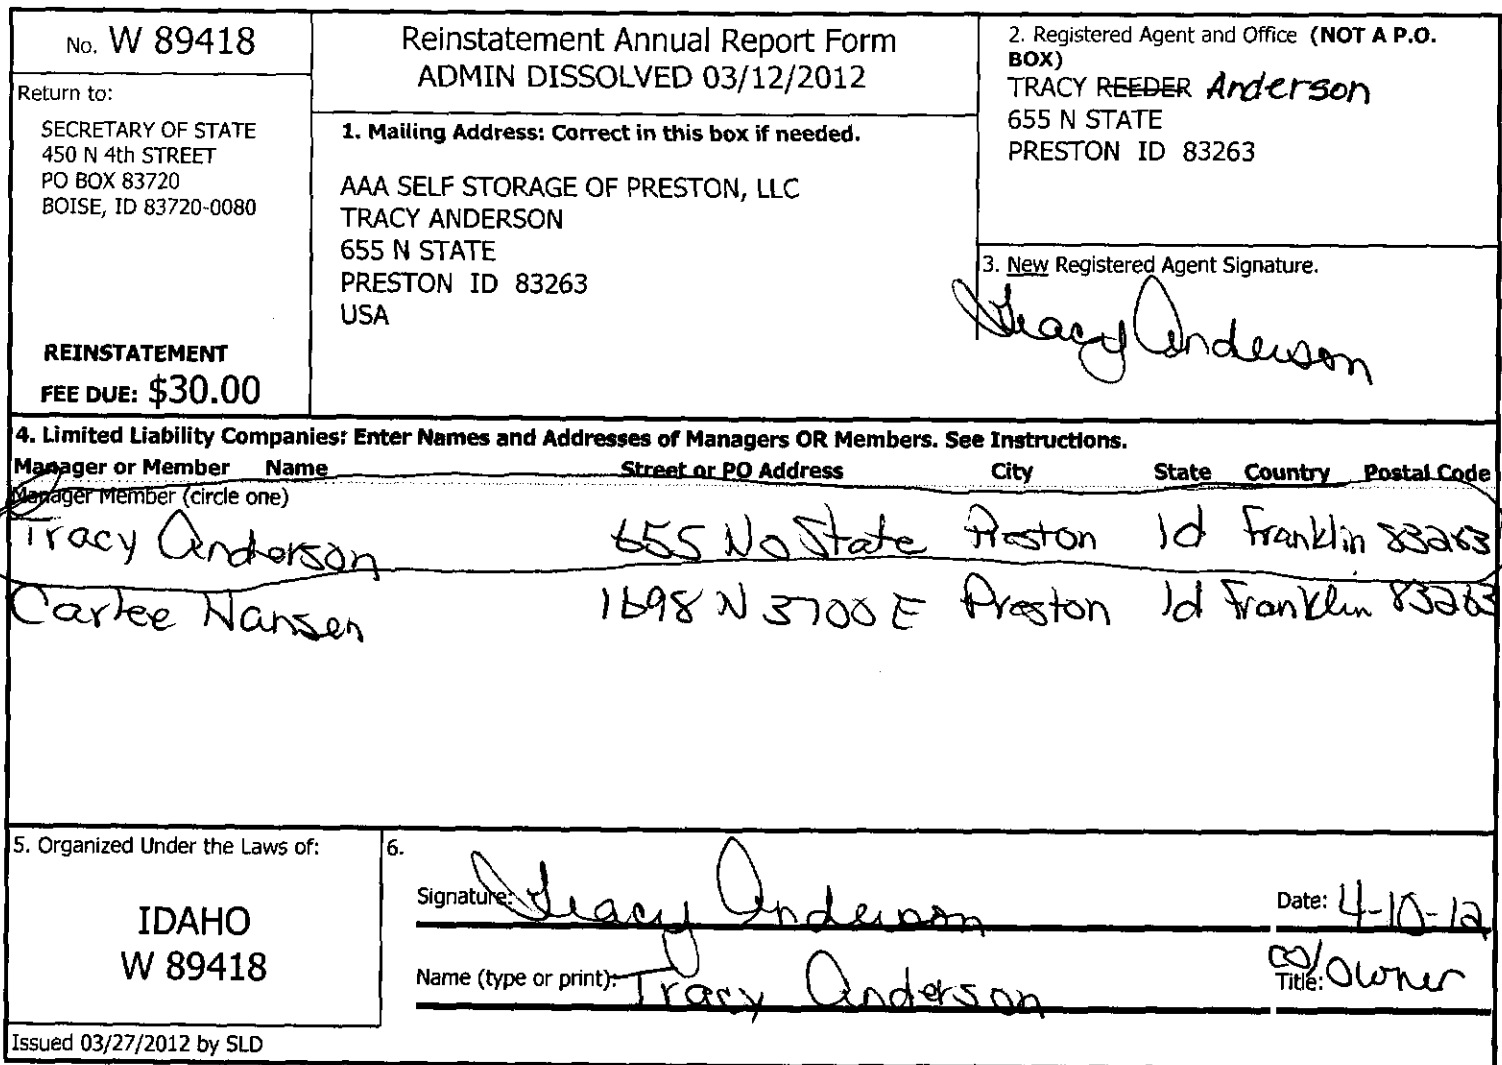 No. W 89418
Return to:
SECRETARY OF STATE
450 N 4th STREET
PO BOX 83720
BOISE, ID 83720-0080
REINSTATEMENT
FEE DUE: $30.00
Reinstatement Annual Report Form
ADMIN DISSOLVED 03/12/2012
1. Mailing Address: Correct in this box if needed.
AAA SELF STORAGE OF PRESTON, LLC
TRACY ANDERSON
655 N STATE
PRESTON ID 83263
USA
2. Registered Agent and Office (NOT A P.O.
BOX)
TRACY REEDER Anderson
655 N STATE
PRESTON ID 83263
3. New Registered Agent Signature.
Tracy Anderson
4. Limited Liability Companies: Enter Names and Addresses of Managers OR Members. See Instructions.
Manager or Member Name Street or PO Address City State Country Postal Code
Manager Member (circle one)
Tracy Anderson 655 No State Preston Id Franklin 83263
Carlee Hansen 1698 N 3700 E Preston Id Franklin 83263
5. Organized Under the Laws of:
IDAHO
W 89418
6.
Signature: Tracy Anderson Date: 4-10-12
Name (type or print): Tracy Anderson Title: co/owner
Issued 03/27/2012 by SLD